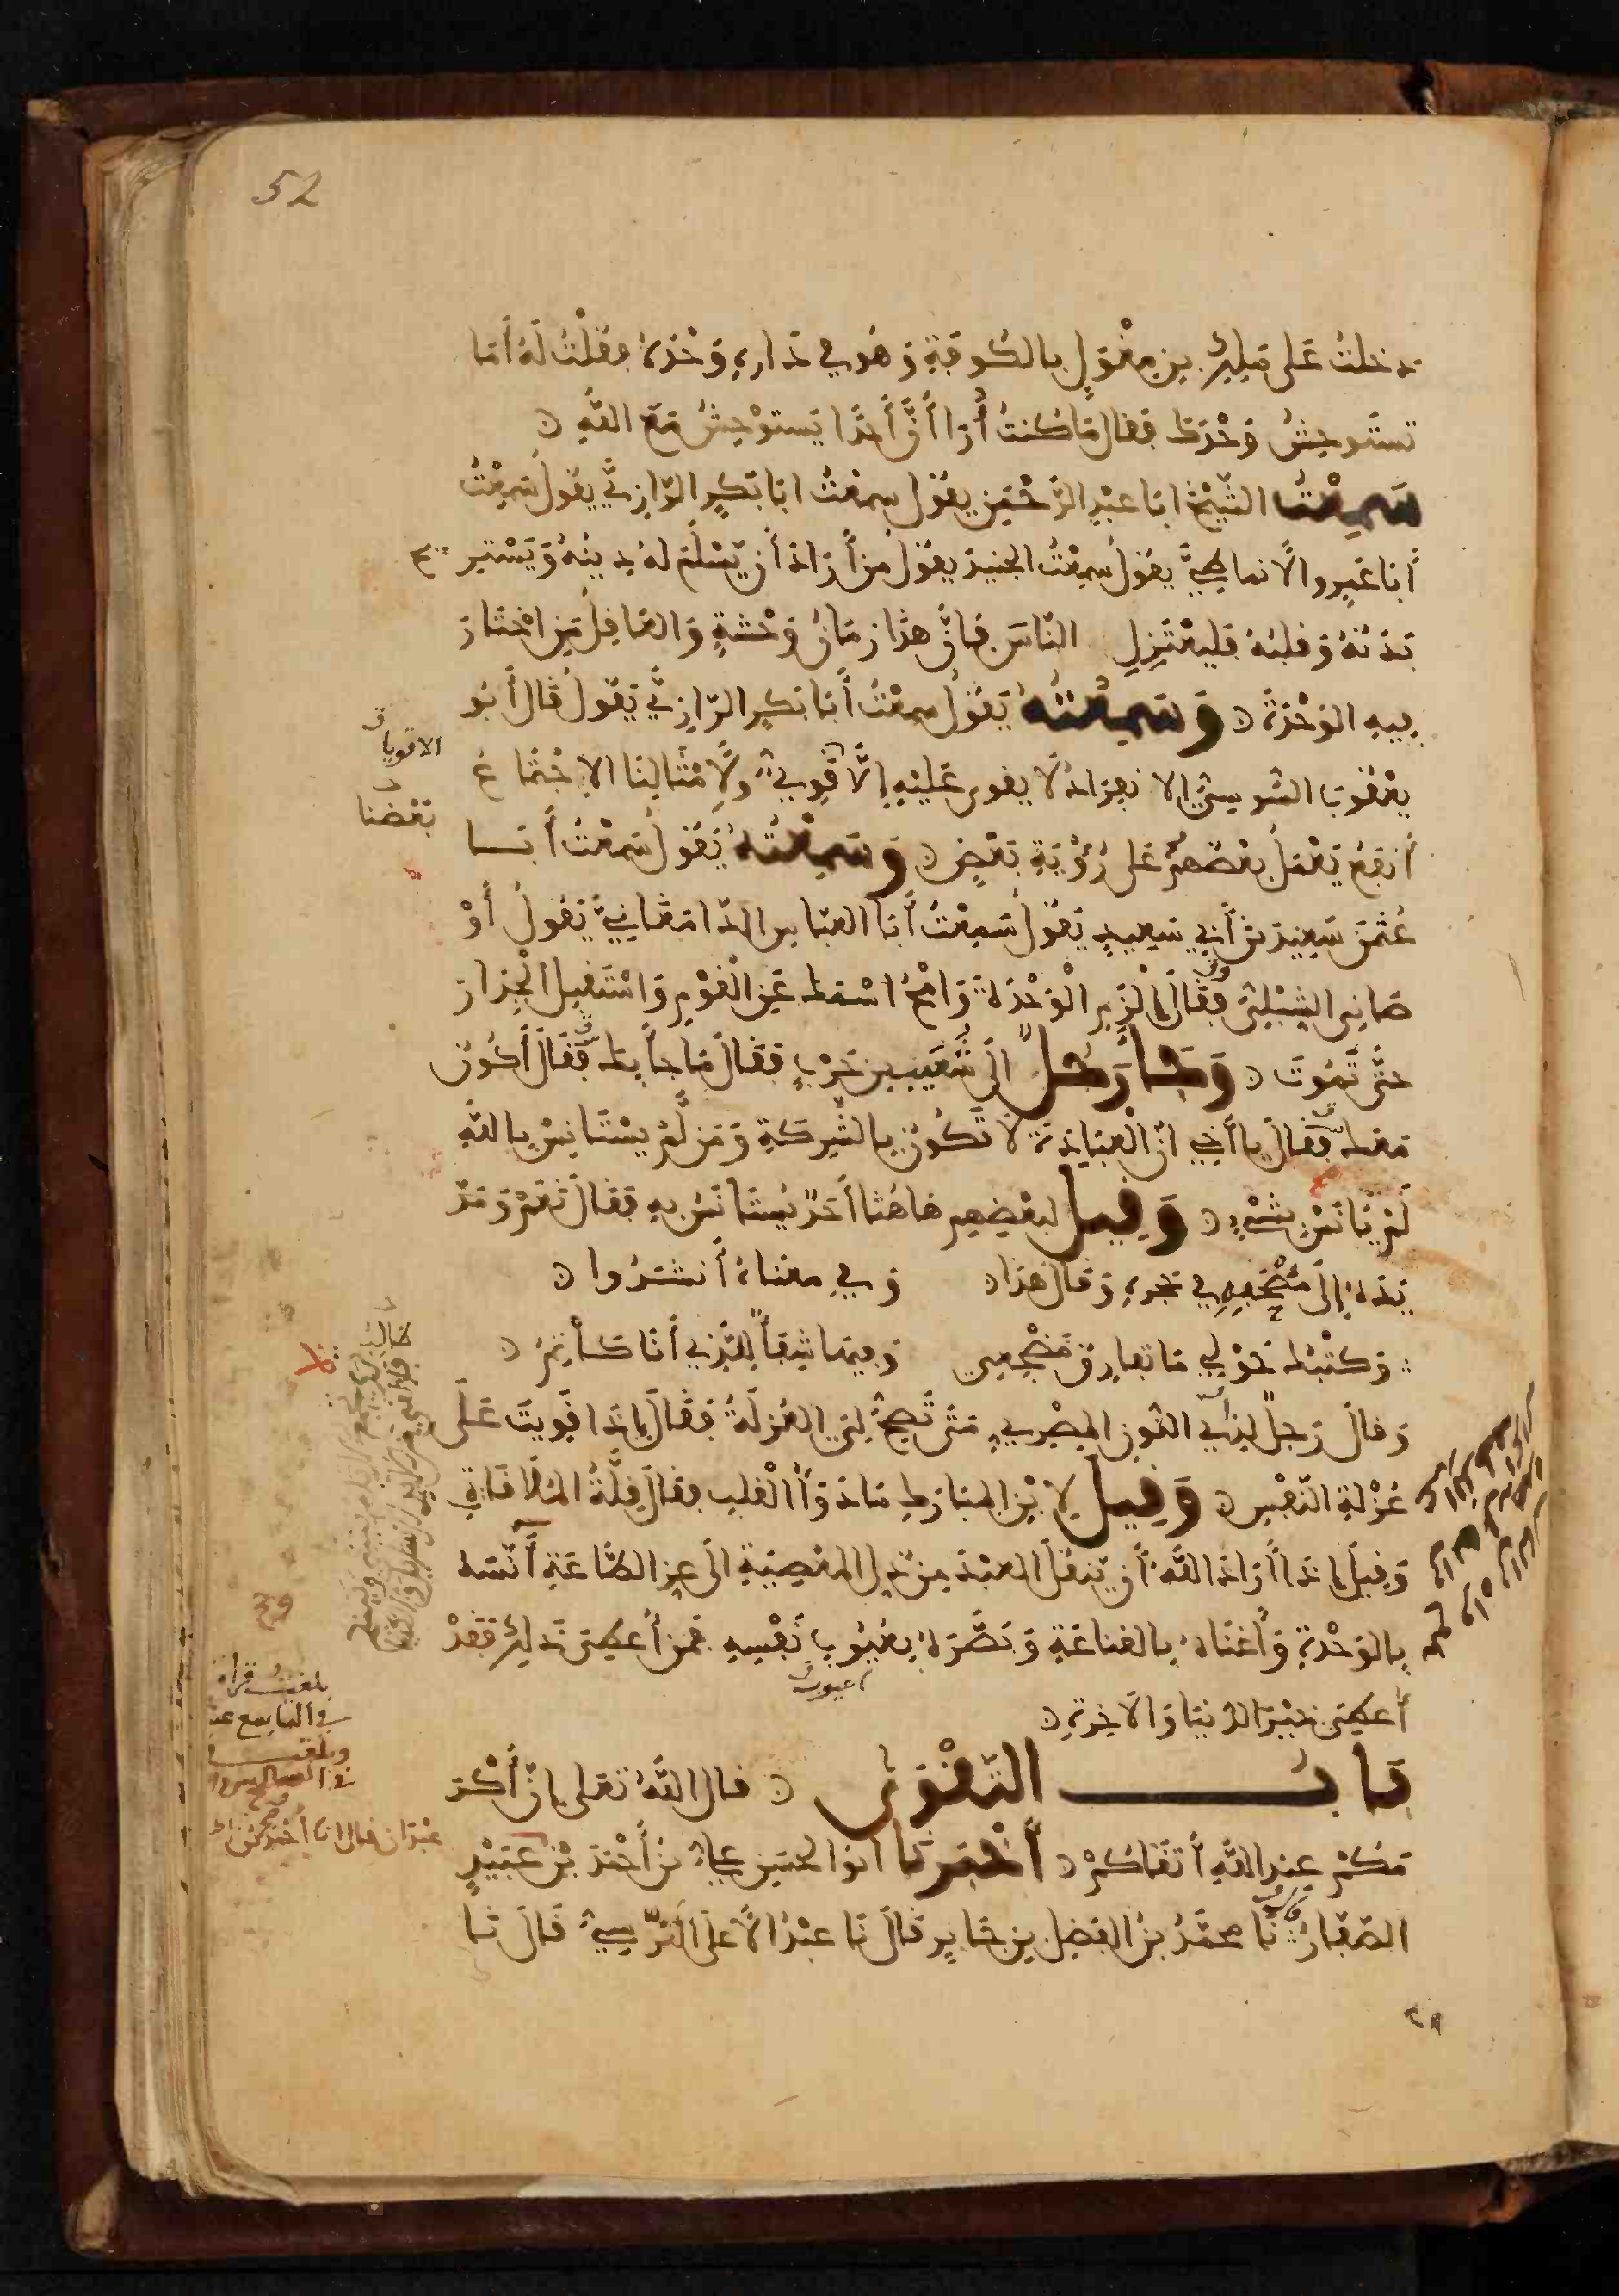 52
دخلت على مالك بن مغول بالكوفة وهو في داره وحده فقلت له أما
تستوحش وحدك فقال ما كنت أرا أن أحدا يستوحش مع الله
سمعت الشيخ ابا عبد الرحمن يقول سمعت ابا بكر الرازي يقول سمعت
أبا عمرو الأنماطي يقول سمعت الجنيد يقول من أراد أن يسلم له دينه ويستريح
بدنه وقلبه فليعتزل الناس فإن هذا زمان وحشة والعاقل من اختار
فيه الوحدة وسمعته يقول سمعت أبا بكر الرازي يقول قال أبو
يعقوب السوسي الانفراد لا يقوى عليه إلا قوي ولأمثالنا الاجتماع
الاقويا
أنفع يعمل بعضهم على رؤية بعض وسمعته يقول سمعت أبا
بعضنا
عثمن سعيد بن أبي سعيد يقول سمعت أبا العباس الدامغاني يقول أو
صاني الشبلي فقال الزم الوحدة وامح اسمك عن القوم واستقبل الجدار
حتى تموت وجا رجل الى شعيب بن حرب فقال ما جا بك فقال أكون
معك فقال يا أخي ان العبادة لا تكون بالشركة ومن لم يستانس بالله
لم يانس بشيء وقيل لبعضهم هاهنا أحد يستانس به فقال نعم ومد
يده إلى مصحفه في حجره وقال هذا وفي معناه أنشدوا
وكتبك حولي ما تفارق مضجعي وفيها شفأ للذي أنا كاتم
وقال رجل لذي النون المصري متى تصح لي العزلة فقال إذا قويت على
عزلة النفس وقيل لابن المبارك ما دوأ القلب فقال قلة الملاقاة
وقيل إذا أراد الله أن ينقل العبد من ذل المعصية الى عز الطاعة أنسه
بالوحدة وأغناه بالقناعة وبصره بعيوب نفسه فمن أعطي ذلك فقد
عيوب
أعطي خير الدنيا والآخرة
باب التقوى قال الله تعلى إن أكر
مكم عند الله أتقاكم أخبرنا ابو الحسين علي بن أحمد بن عبدان قال انا أحمد بن عبيد
الصفار نا محمد بن الفضل بن جابر قال نا عبد الأعلى النرسي قال نا
بلغت قراة
في التاسع
وبلغت